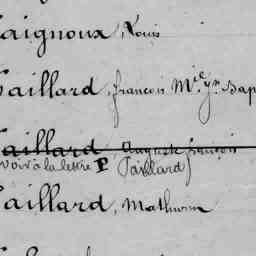 aignoux, Louis
aillard, francois Mie
aillard Auguste françois
voir à la lettre P (Paillard)
aillard, Mathurin